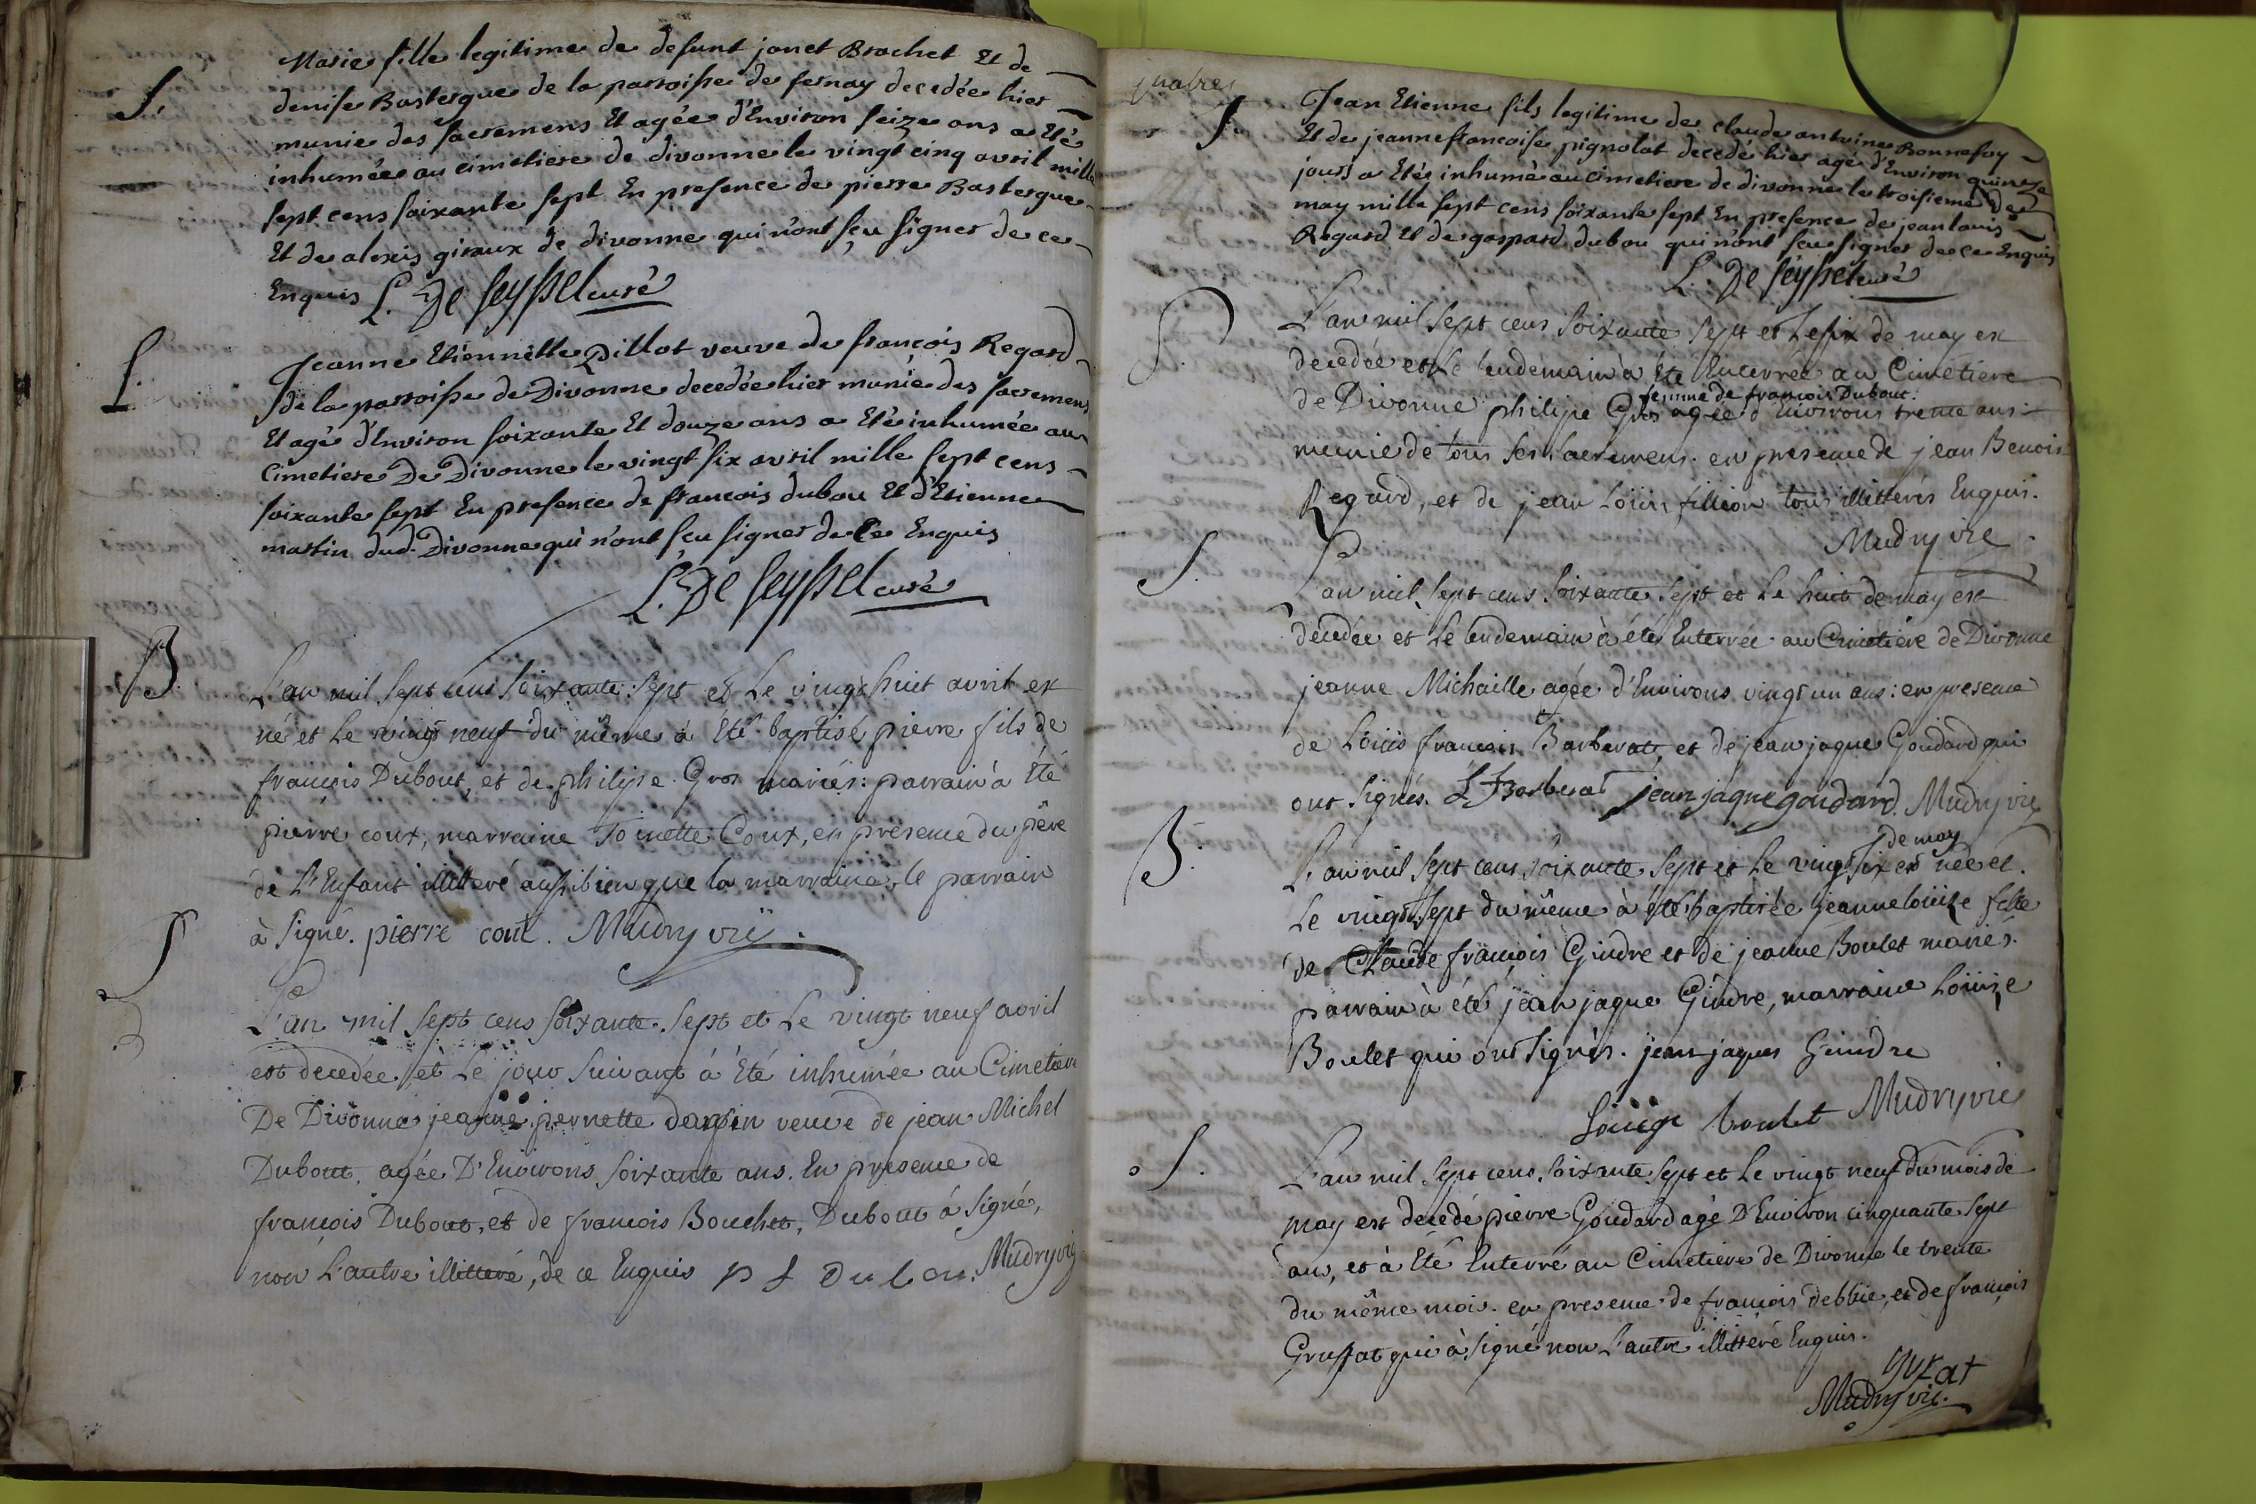 S.
Marie fille legitime de defunt jonet Brachet Et de
denise Bastergue de la parroisse de fernay decedée hier
munie des sacremens Et agée d'Environ seize ans a Eté
inhumée au cimetiere de divonne le vingt cinq avril mille
sept cens soixante sept En presence de pierre Bastergue
Et de alexis giraux de divonne qui n'ont sçu signer de ce
Enquis L. De Seyssel curé
S.
Jeanne Etiennette Pillot veuve de francois Regard
de la parroisse de Divonne decedée hier munie des sacremens
Et agé d'Environ soixante Et douze ans a Eté inhumée au
Cimetiere De Divonne le vingt six avril mille sept cens
soixante sept En presence de francois dubou Et d'Etienne
martin dud. Divonne qui n'ont sçu signer de Ce Enquis
L. De Seyssel curé
B.
L'an mil sept cens soixante sept et Le vingt huit avril est
né et Le vingt neuf du même à été baptisé pierre fils de
françois Dubout, et de philipe Gros mariés: parrain à Eté
pierre coux, marraine Toinette Coux, en présence du père
de L'Enfant illitteré aussi bien que la marraine, le parrain
à signé. pierre cout. Mudry vic.
S
L'an mil sept cens soixante sept et Le vingt neuf avril
est decedée et Le jour suivant à Eté inhumée au Cimetiere
De Divonne jeanne pernette veuve de jean Michel
Dubout, agée D'Environs soixante ans. En presence de
françois Dubout, et de francois Bouchet, Dubout à signé,
non L'autre illitteré, de ce Enquis p f Dubou. Mudry vic
S.
Jean Etienne fils legitime de claude antoine Bonnefoy
Et de jeanne francoise pignolat decedé hier agé d'Environ quinze
jours a Eté inhumé au cimetiere de divonne le troisieme de
may mille sept cens soixante sept En presence de jean louis
Regard Et de gaspard dubou qui n'ont sçu signer de ce Enquis
L. De Seyssel curé
S.
L'an mil sept cens soixante sept et Le six de may est
decedée et Le lendemain à été Enterrée au Cimetiere
femme de françois Dubout.
de Divonne philipe Gros agée d'Environs trente ans
munie de tous ses sacremens. en presence de jean Benoit
Regard, et de jean Loüis fillion tous illitterés Enquis.
Mudry vic.
S.
L'an mil sept cens soixante sept et Le huit de may est
decedée et Le lendemain à été Enterrée au Cimetiere de Divonne
jeanne Michaille agée d'Environs vingt un ans: en presence
de Loüis françois Barberat, et de jean jaque Goudard qui
ont signés. L F Barberat jean jaque goudard. Mudry vic
B.
de may
L'an mil sept cens soixante sept et Le vingt six est née et
Le vingt sept du même à été baptisée jeanne loüize fille
de Claude françois Gindre et de jeanne Boulet mariés.
parrain à été jean jaque Gindre, marraine Loüize
Boulet qui ont signés. jean jaques Geindre
Louise boulet Mudry vic
S.
L'an mil sept cens soixante sept et Le vingt neuf du mois de
may est decedé pierre Goudard agé D'Environ cinquante sept
ans, et à Eté Enterré au Cimetiere de Divonne le trente
du même mois. en presence de françois debbie, et de françois
Grussat qui à signé non L'autre illitteré Enquis.
Mudry vic.